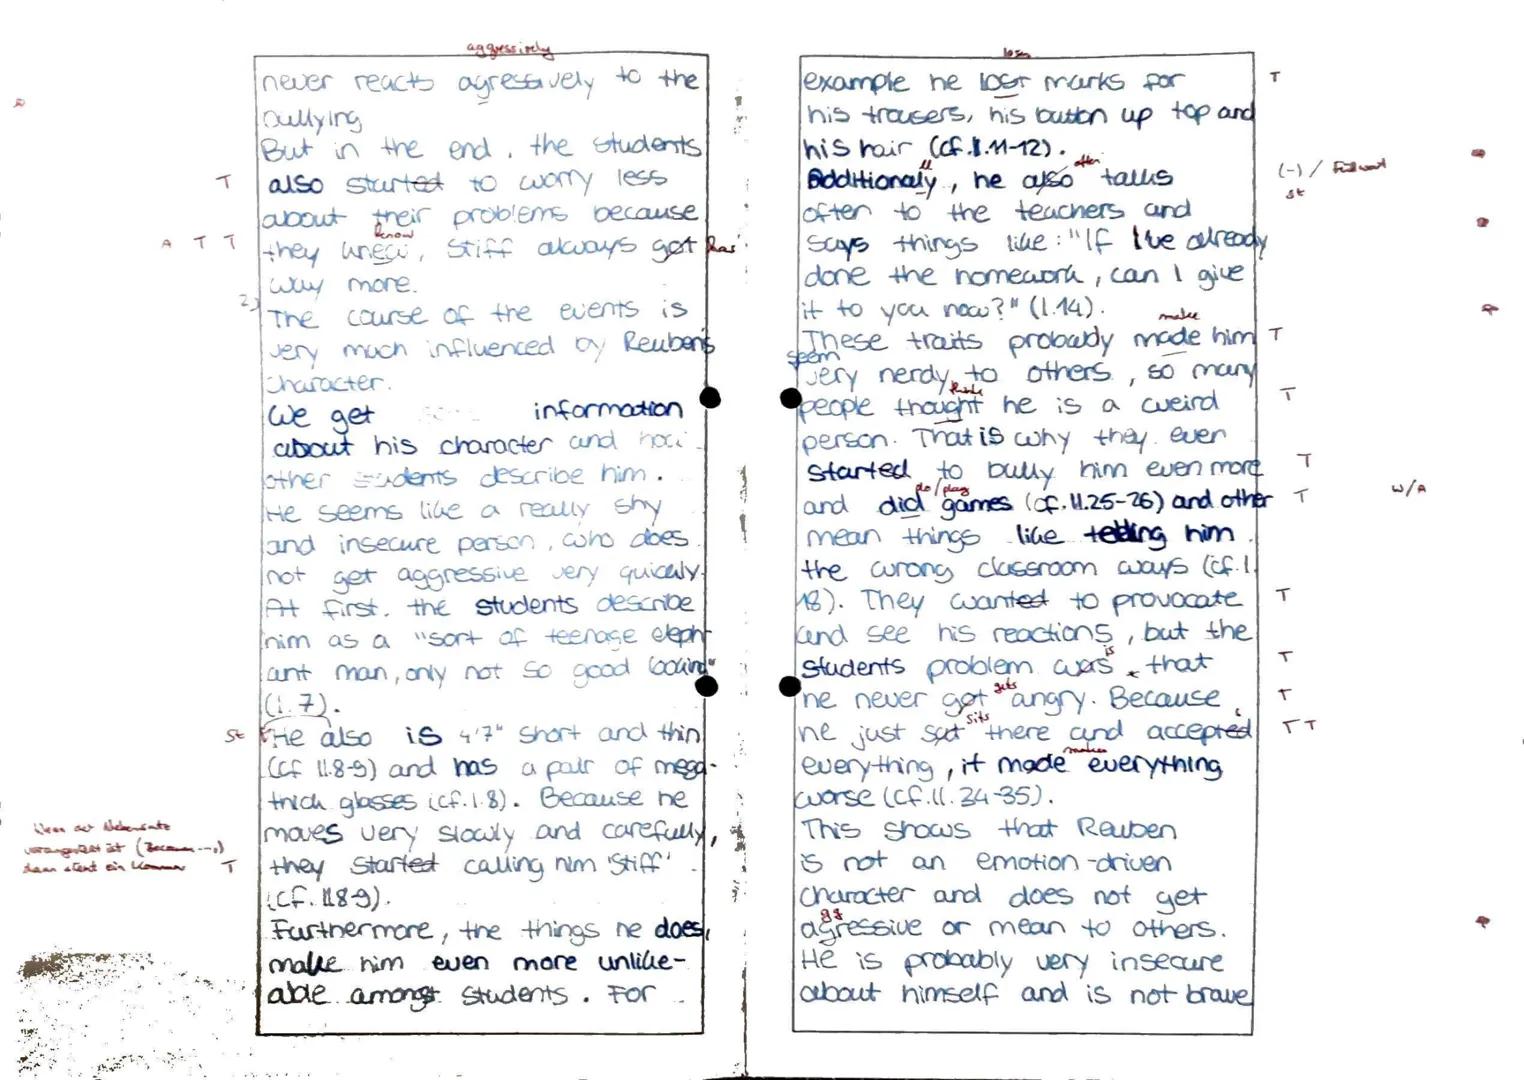 aggressively
never reacts agressively to the
bullying
But in the end, the students
T also started to worry less
about their problems because
know
A T T they knew, Stiff always got has
way more.
2)
The course of the events is
very much influenced by Reuben's
character.
We get information
about his character and how
other students describe him.
He seems like a really shy
and insecure person, who does
not get aggressive very quickly.
At first, the students describe
him as a "sort of teenage eleph-
ant man, only not so good looking"
(l.7).
St He also is 4'7" short and thin
(cf ll.8-9) and has a pair of mega-
thick glasses (cf.l.8). Because he
moves very slowly and carefully,
Wenn der Nebensatz
vorangestellt ist (Because ---,)
dann steht ein Komma T
they started calling him 'Stiff'
(cf. ll.8-9).
Furthermore, the things he does,
make him even more unlike-
able amongst students. For
loses
example he lost marks for T
his trousers, his button up top and
his hair (cf.l.11-12).
ll often
Additionaly, he also talks (-) / Füllwort
St
often to the teachers and
says things like: "If I've already
done the homework, can I give
it to you now?" (l.14).
make
These traits probably made him T
seem
very nerdy to others, so many
think
people thought he is a weird T
person. That is why they even
started to bully him even more T
do/play
and did games (cf. ll.25-26) and other T W/A
mean things like telling him
the wrong classroom ways (cf.l.
18). They wanted to provocate T
and see his reactions, but the
is
students problem was, that T
gets
he never got angry. Because T
sits
he just sat there and accepted T T
makes
everything, it made everything
worse (cf.ll.34-35).
This shows that Reuben
is not an emotion-driven
character and does not get
gg
agressive or mean to others.
He is probably very insecure
about himself and is not brave